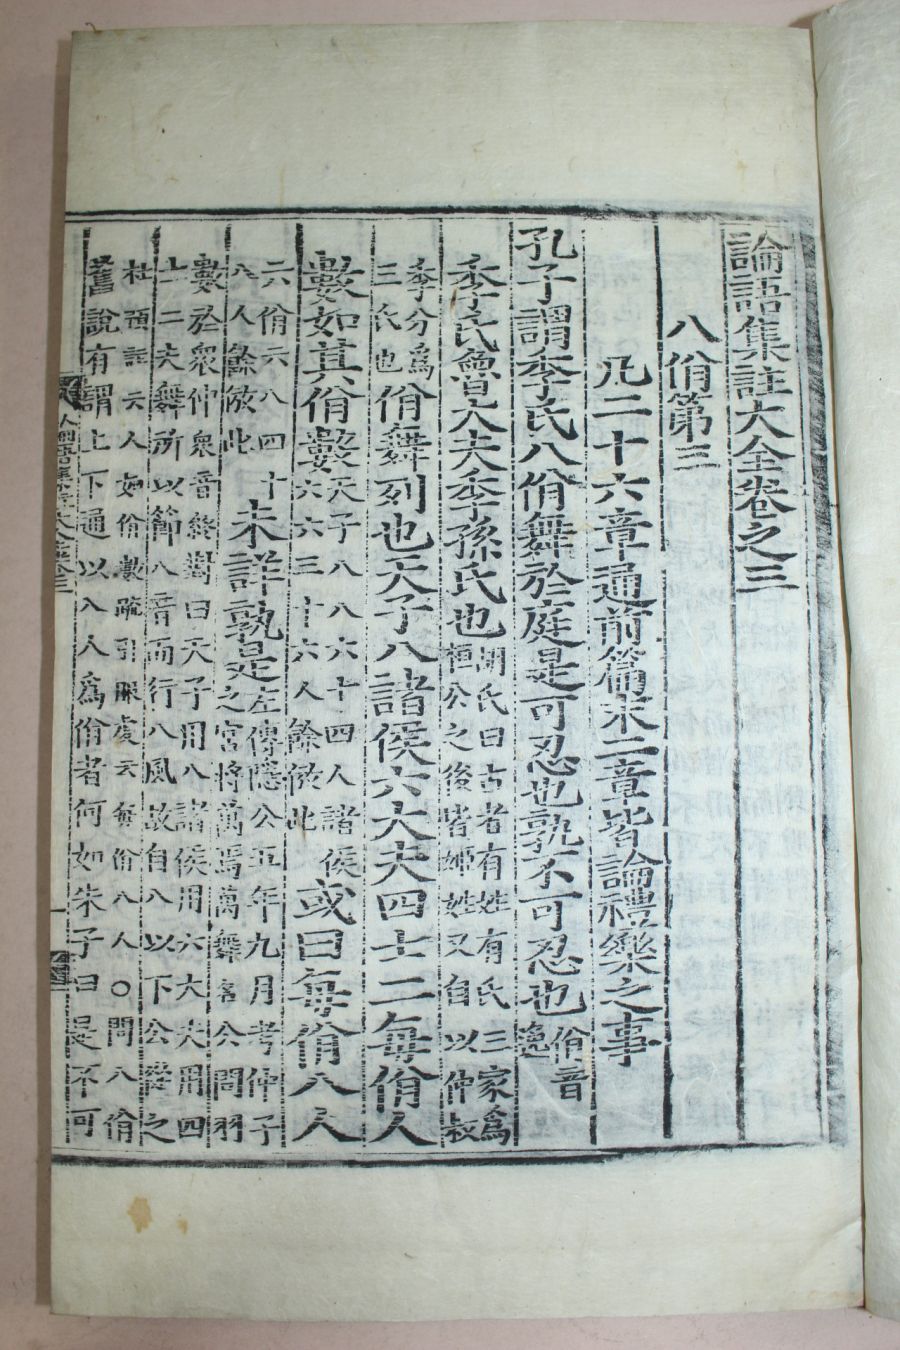 論語集註大全卷之三
八佾第三
凡二十六章通前篇末二章皆論禮樂之事
孔子謂季氏八佾舞於庭是可忍也孰不可忍也佾音逸
季氏魯大夫季孫氏也胡氏曰古者有姓有氏三家爲桓公之後皆姬姓又自以仲叔
季分爲三氏也佾舞列也天子八諸侯六大夫四士二每佾人
數如其佾數天子八八六十四人諸侯六六三十六人餘倣此或曰每佾八人
六佾六八四十八人餘倣此未詳孰是左傳隱公五年九月考仲子之宮將萬焉萬舞名公問羽
數於衆仲衆音終對曰天子用八諸侯用六大夫用四
士二夫舞所以節八音而行八風故自八以下公從之
杜預註云人如佾數疏引服虔云每佾八人○問八佾
舊說有謂上下通以八人爲佾者何如朱子曰是不可